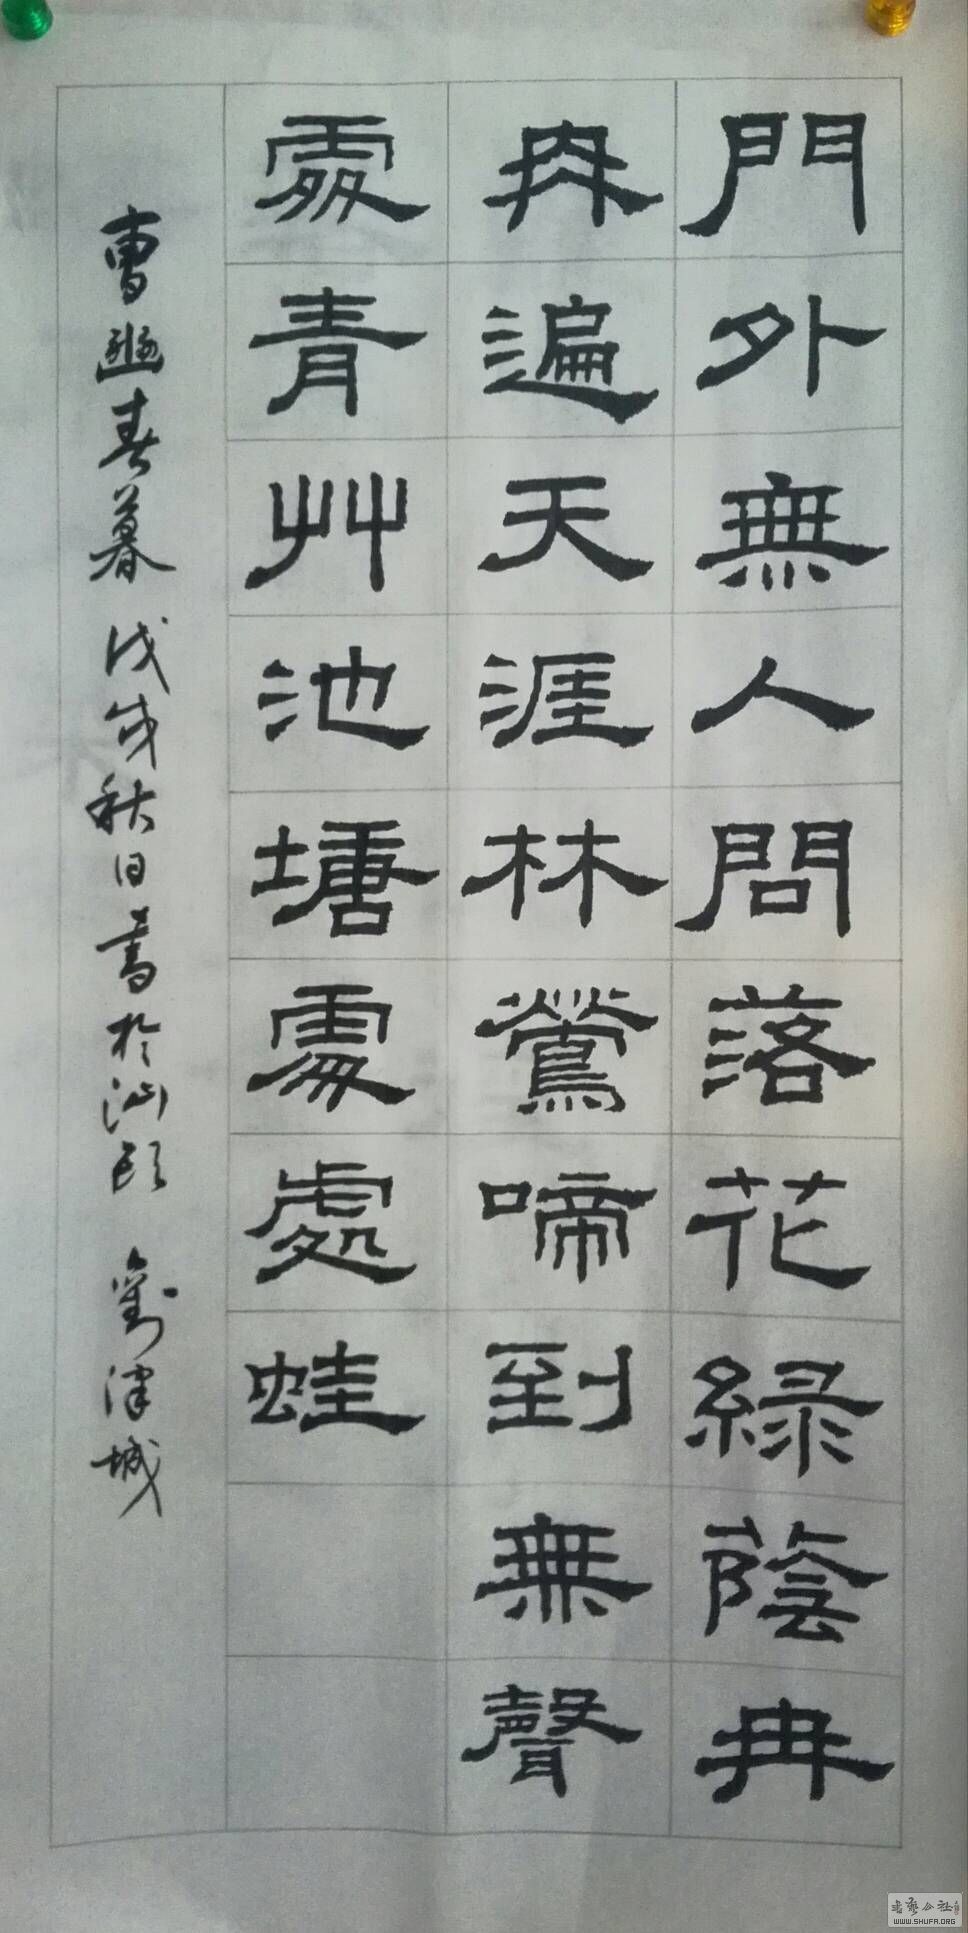 門外無人問落花綠蔭冉
冉遍天涯林鶯啼到無聲
處青艸池塘處處蛙
曹豳春暮 戊戌秋日書於汕頭 劉津城
書藝公社
WWW.SHUFA.ORG